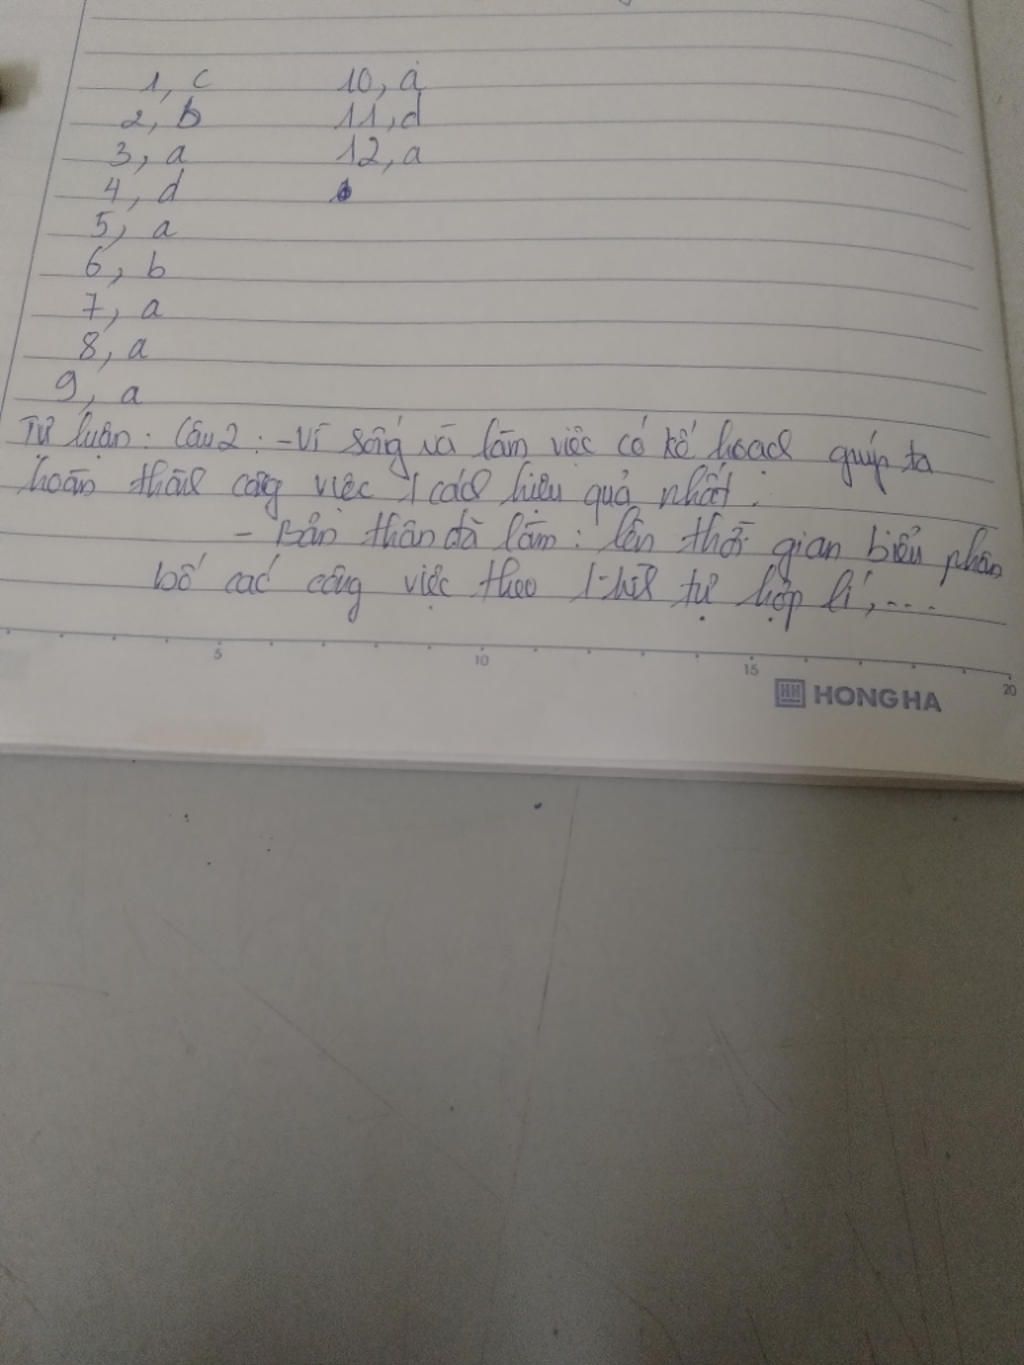 1, c
2, b
3, a
4, d
5, a
6, b
7, a
8, a
9, a
10, a
11, d
12, a
Tự luận: Câu 2: - Vì sống và làm việc có kế hoạch giúp ta
hoàn thành công việc 1 cách hiệu quả nhất.
- Bản thân đã làm: lên thời gian biểu phân
bố các công việc theo trình tự hợp lí,...
5 10 15 20
HH HONG HA